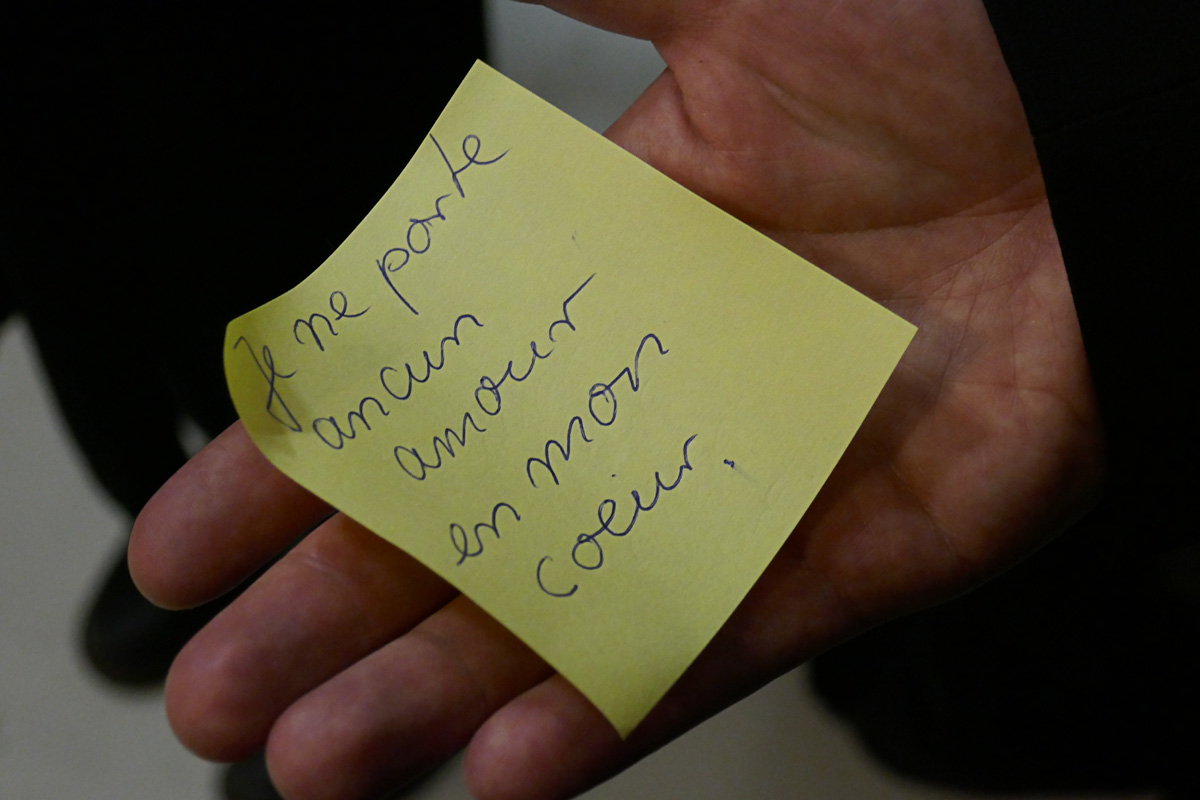 Je ne porte
aucun
amour
en mon
coeur.